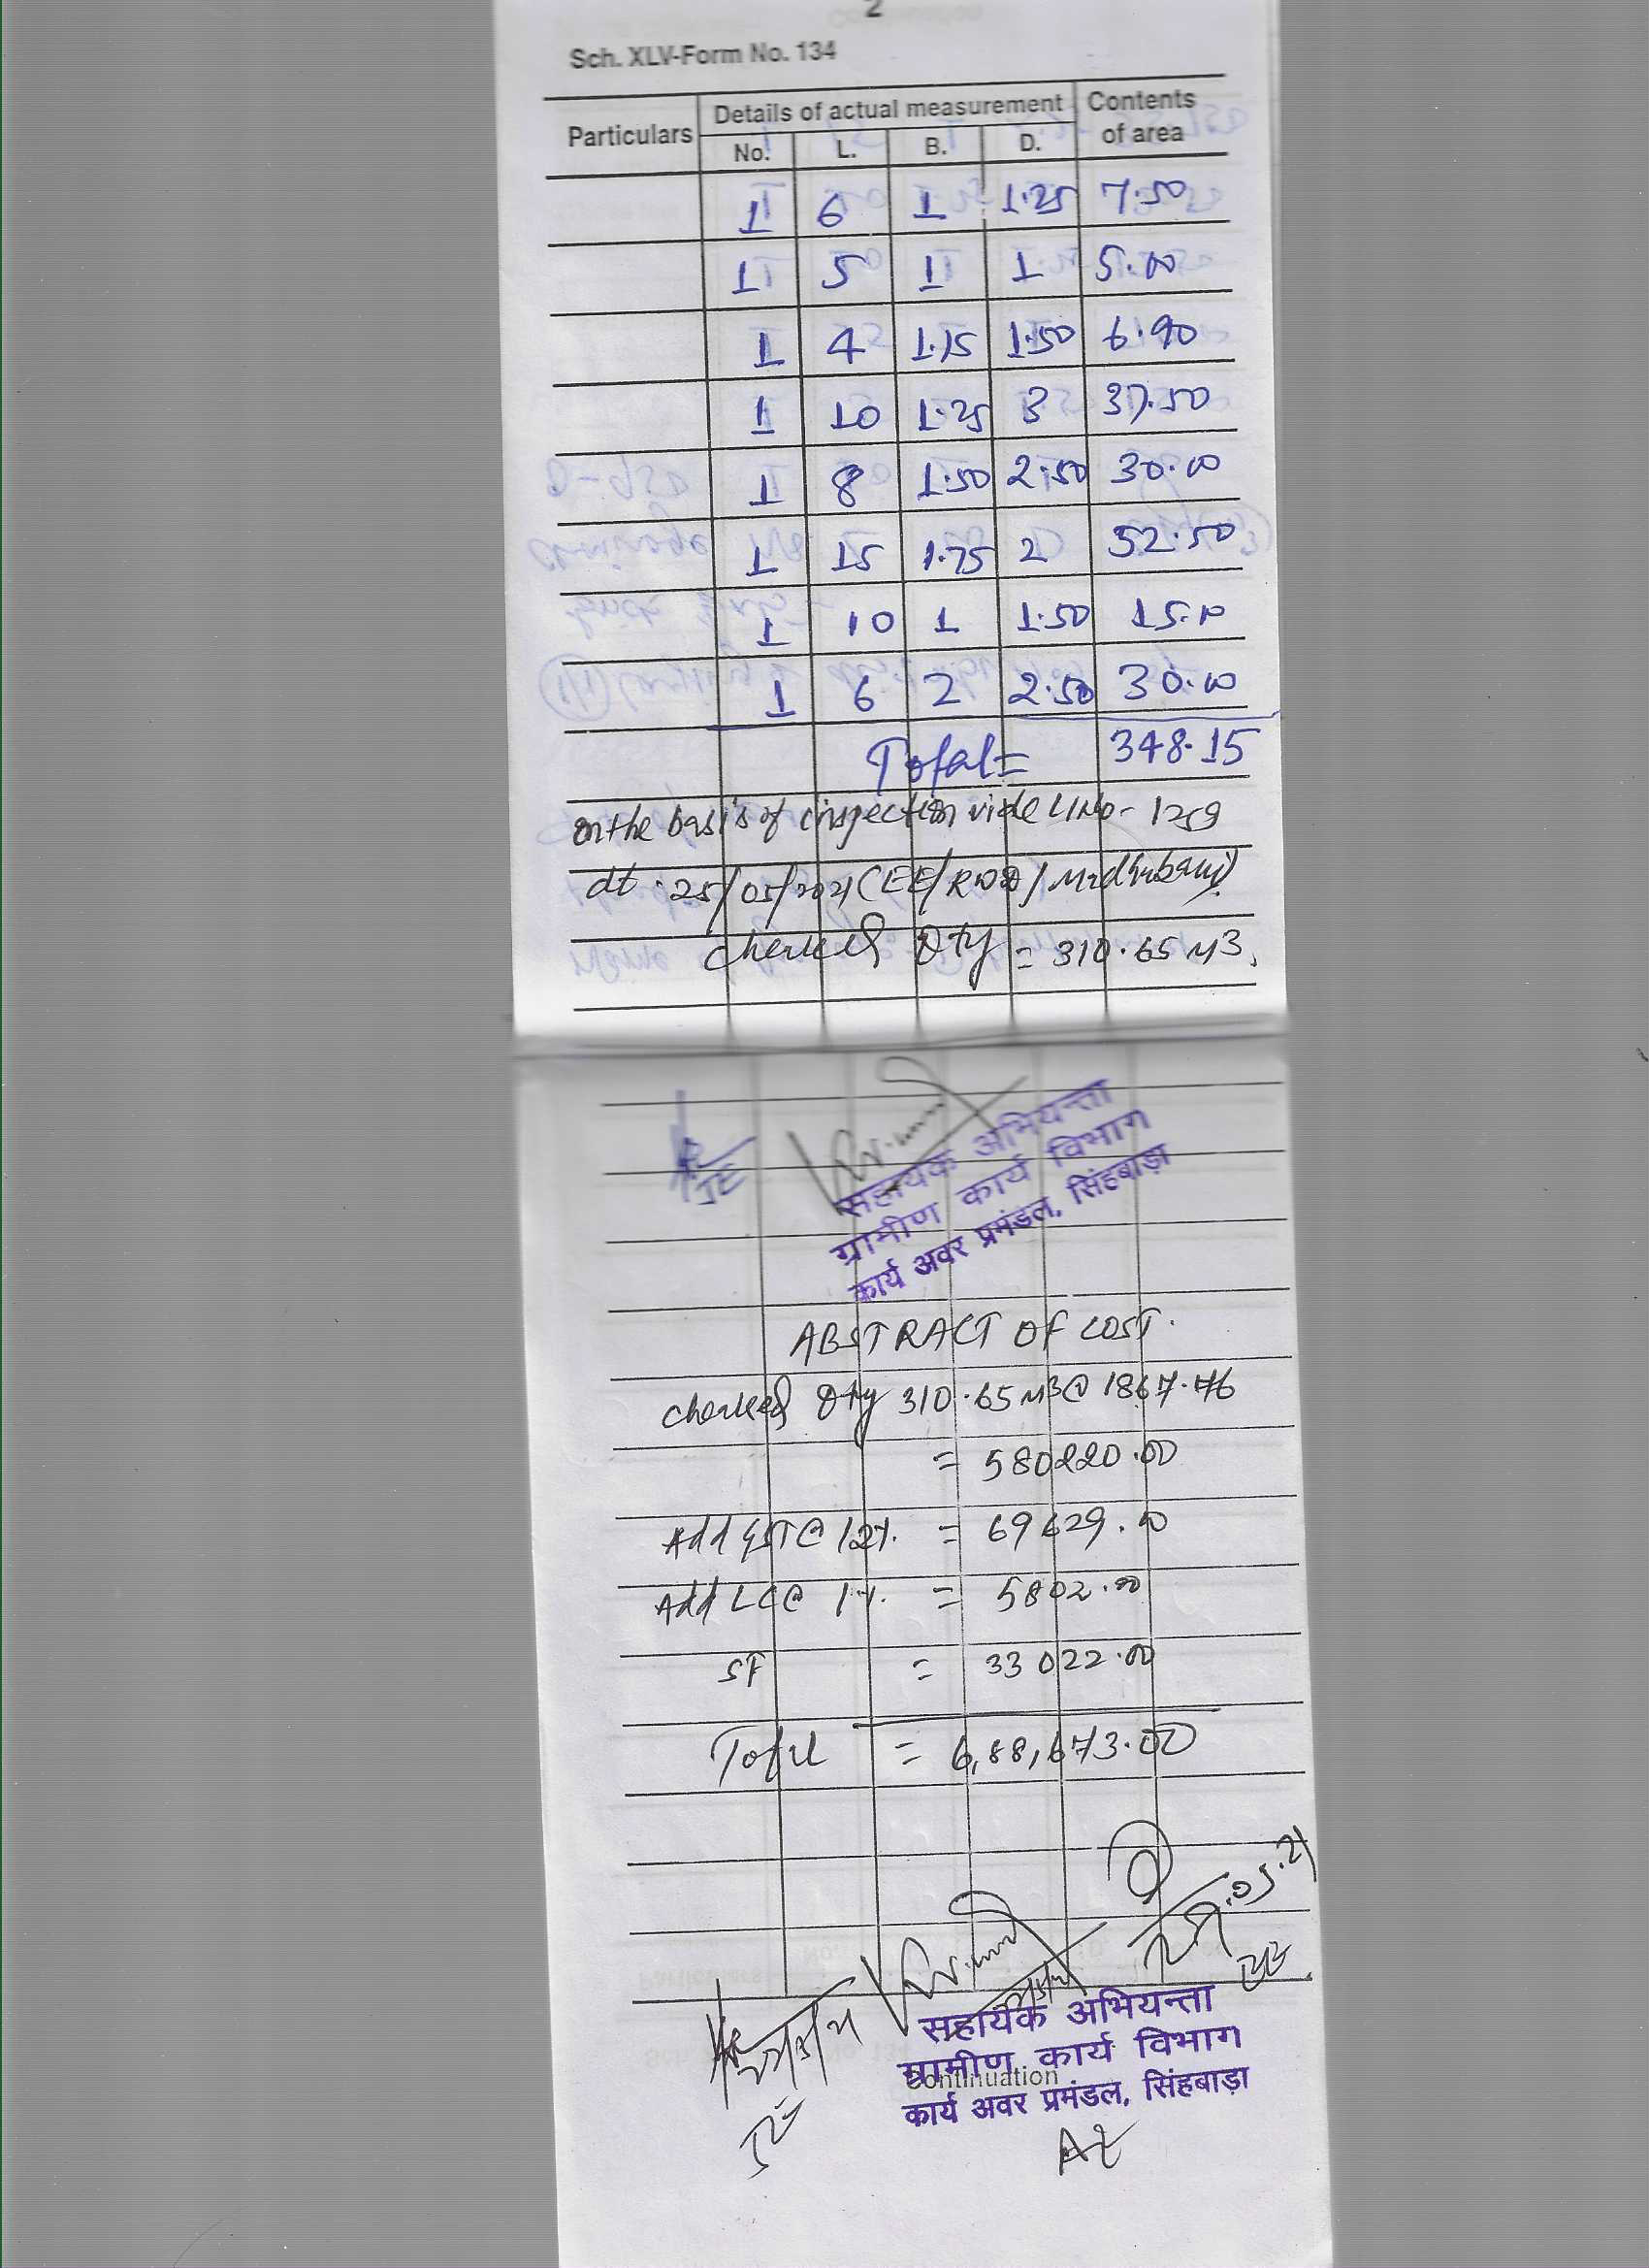 2
Sch. XLV-Form No. 134
Particulars Details of actual measurement Contents of area
No. L. B. D.
1 6 1 1.25 7.50
1 5 1 1 5.00
1 4 1.15 1.50 6.90
1 10 1.25 3 37.50
1 8 1.50 2.50 30.00
1 15 1.75 2 52.50
1 10 1 1.50 15.00
1 6 2 2.50 30.00
Total = 348.15
on the basis of inspection vide LNo- 1259
dt. 25/05/2021 (EE/RWD/Madhubani)
checked Qty = 310.65 M3.
JE
सहायक अभियन्ता
ग्रामीण कार्य विभाग
कार्य अवर प्रमंडल, सिंहबाड़ा
ABSTRACT OF COST.
checked Qty 310.65 M3 @ 1867.76
= 580220.00
Add GST @ 12%. = 69629.00
Add LC @ 1%. = 5802.00
SF = 33022.00
Total = 6,88,673.00
.05.21
EE
सहायक अभियन्ता
ग्रामीण कार्य विभाग
Continuation
कार्य अवर प्रमंडल, सिंहबाड़ा
JE
AE